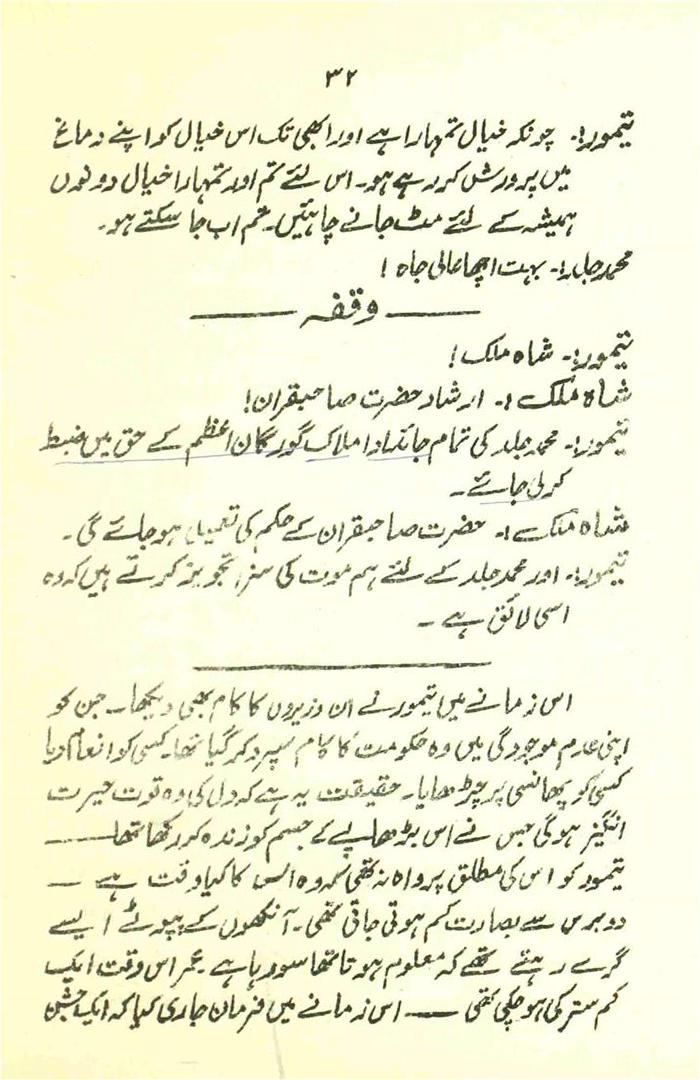 ۳۲
تیمور:۔ چونکہ خیال تمہارا ہے اور ابھی تک اس خیال کو اپنے دماغ
میں پرورش کر رہے ہو۔ اس لئے تم اور تمہارا خیال دونوں
ہمیشہ کے لئے مٹ جانے چاہئیں۔ تم اب جا سکتے ہو۔
محمد جلد:۔ بہت اچھا عالی جاہ !
وقفہ
تیمور:۔ شاہ ملک !
شاہ ملک :۔ ارشاد حضرت صاحبقران !
تیمور:۔ محمد جلد کی تمام جائداد املاک گورگان اعظم کے حق میں ضبط
کر لی جائے ۔
شاہ ملک :۔ حضرت صاحبقران کے حکم کی تعمیل ہو جائے گی ۔
تیمور:۔ اور محمد جلد کے لئے ہم موت کی سزا تجویز کرتے ہیں کہ وہ
اسی لائق ہے ۔
اس زمانے میں تیمور نے ان وزیروں کا کام بھی دیکھا۔ جن کو
اپنی عدم موجودگی میں وہ حکومت کا کام سپرد کر گیا تھا۔ کسی کو انعام دیا
کسی کو پھانسی پر چڑھایا۔ حقیقت یہ ہے کہ دل کی وہ قوت حیرت
انگیز ہوگی جس نے اس بڑھاپے کے جسم کو زندہ کر رکھا تھا ——
تیمور کو اس کی مطلق پرواہ نہ تھی کہ وہ اس کا کیا وقت ہے —
دو برس سے بصارت کم ہوتی جاتی تھی۔ آنکھوں کے پپوٹے ایسے
گرے رہتے تھے کہ معلوم ہوتا تھا سو رہا ہے۔ عمر اس وقت ایک
کم ستر کی ہو چکی تھی —— اس زمانے میں فرمان جاری کیا کہ ایک جشن